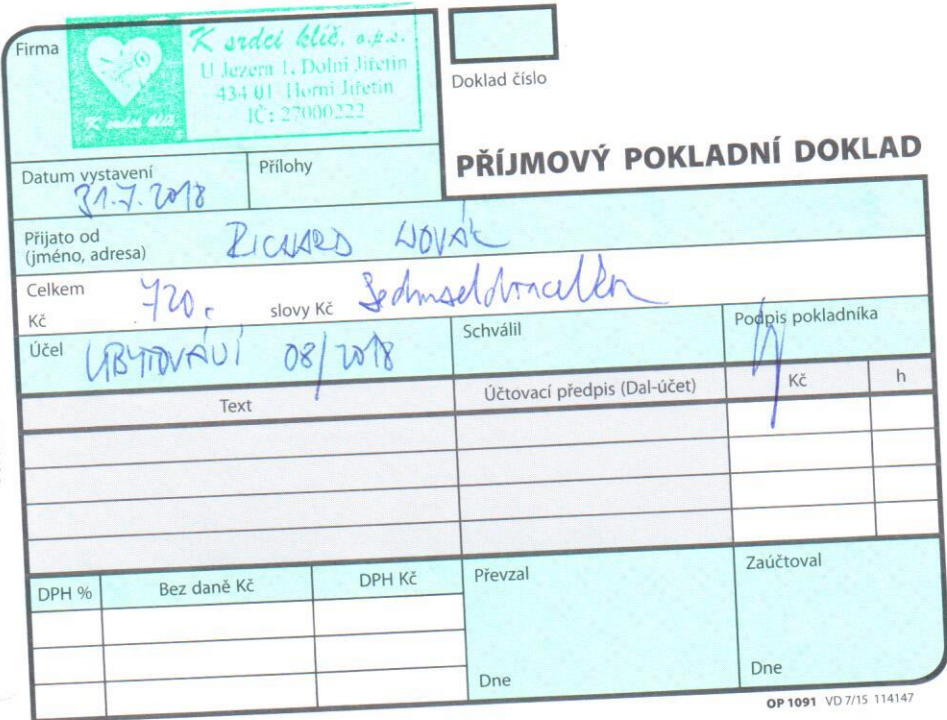 Firma
K srdci klíč, o.p.s.
U Jezera 1, Dolní Jiřetín
434 01 Horní Jiřetín
IČ: 27000222
K srdci klíč
Doklad číslo
PŘÍJMOVÝ POKLADNÍ DOKLAD
Datum vystavení
31.7.2018
Přílohy
Přijato od
(jméno, adresa)
RICHARD NOVÁK
Celkem
Kč
720,-
slovy Kč
Sedmsetdvacetkč
Účel
UBYTOVÁNÍ 08/2018
Schválil
Podpis pokladníka
Text
Účtovací předpis (Dal-účet)
Kč
h
DPH %
Bez daně Kč
DPH Kč
Převzal
Zaúčtoval
Dne
Dne
OP 1091 VD 7/15 114147